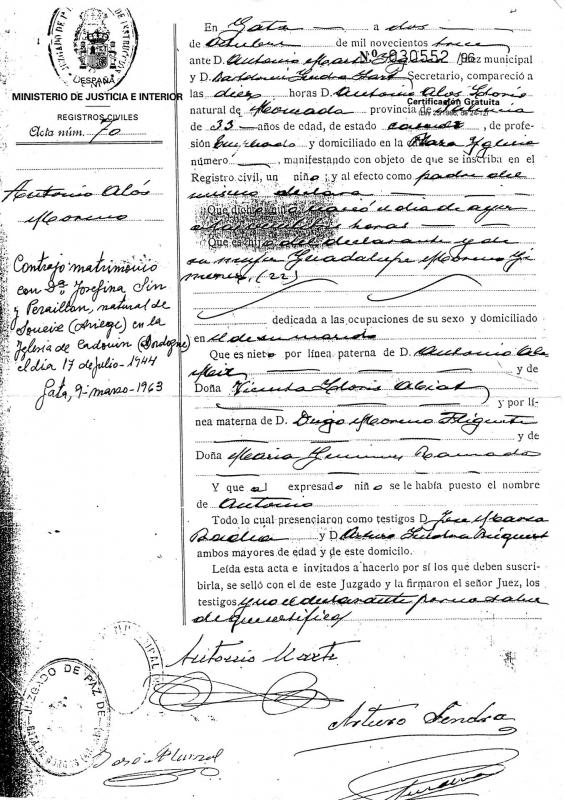 JUZGADO DE P
DE INSTRUCCION
ESPAÑA
MINISTERIO DE JUSTICIA E INTERIOR
REGISTROS CIVILES
Acta núm. 70
Antonio Alós
Moreno
Contrajo matrimonio
con Dª Josefina Sin
y Peraillan, natural de
Soueix (Ariege) en la
Iglesia de Cadouin (Dordogne)
el día 17 de julio - 1944
Gata, 9-marzo-1963
En Gata a dos
de Octubre de mil novecientos trece
ante D. Antonio Juez municipal
Nº 930552 /96
y D. Bartolomé Secretario, compareció a
las diez horas D. Antonio Alós
natural de Moncada provincia de Valencia
Certificación Gratuita
de 33 años de edad, de estado casado, de profe-
sión y domiciliado en la Plaza Iglesia
número , manifestando con objeto de que se inscriba en el
Registro civil, un niño; y al efecto como padre del
mismo declara
Que dicho niño nació el dia de ayer
a horas
Que es hijo del declarante y de
su mujer Guadalupe Moreno Ji
menez, (22)
dedicada a las ocupaciones de su sexo y domiciliado
en el de su marido
Que es nieto por línea paterna de D. Antonio Alós
y de
Doña Vicenta
y por lí-
nea materna de D. Diego Moreno
y de
Doña Maria Jimenez
Y que al expresado niño se le había puesto el nombre
de Antonio
Todo lo cual presenciaron como testigos D. Jose Maria
y D. Arturo Sendra
ambos mayores de edad y de este domicilo.
Leída esta acta e invitados a hacerlo por sí los que deben suscri-
birla, se selló con el de este Juzgado y la firmaron el señor Juez, los
testigos y no el declarante por no saber
de que certifico
MUNICIPAL
Antonio Martí
JUZGADO DE PAZ DE
Arturo Sendra